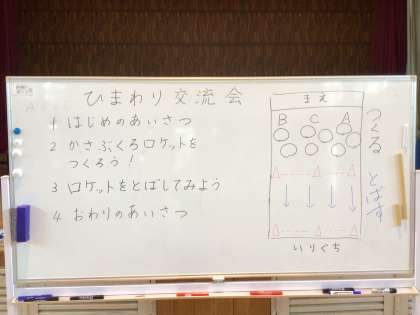 ひまわり交流会
1 はじめのあいさつ
2 かさぶくろロケットを
つくろう!
3 ロケットをとばしてみよう
4 おわりのあいさつ
まえ
B C A
つくる
とばす
いりぐち